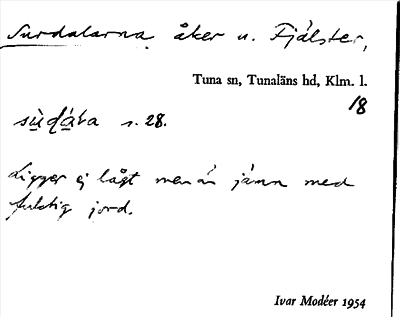 Surdalarna, åker u. Fjälster,
Tuna sn, Tunaläns hd, Klm. l.
18
s. 28.
Ligger ej lågt men är jämn med
fuktig jord.
Ivar Modéer 1954